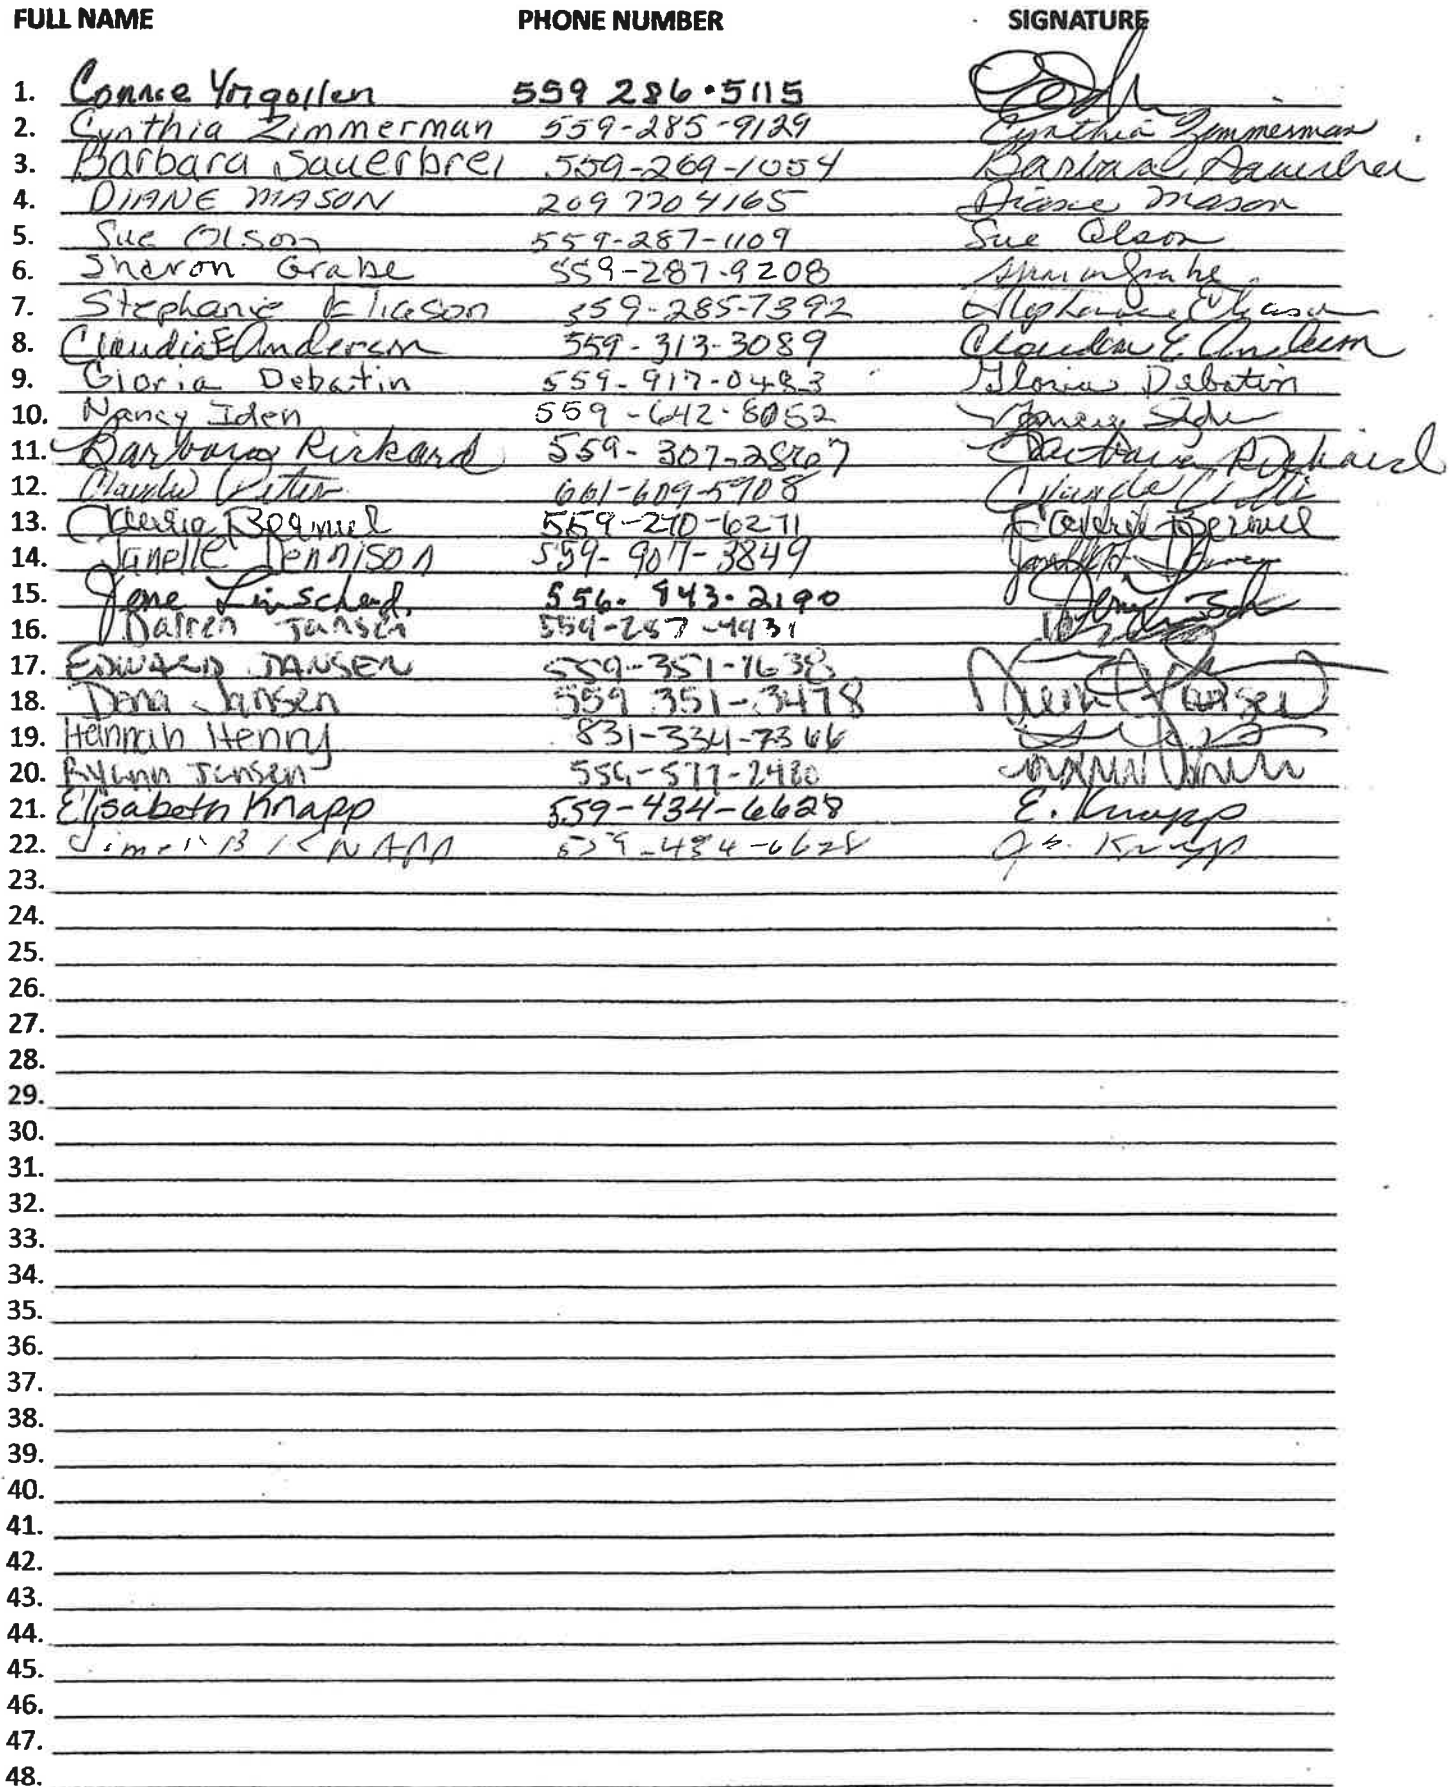 FULL NAME PHONE NUMBER SIGNATURE
1. Connie Yrigollen 559 286·5115
2. Cynthia Zimmerman 559-285-9129 Cynthia Zimmerman
3. Barbara Sauerbrei 559-269-1054 Barbara Sauerbrei
4. DIANE MASON 209 7704165 Diane Mason
5. Sue Olson 559-287-1109 Sue Olson
6. Sharon Grabe 559-287-9208 Sharon Grabe
7. Stephanie Eliason 559-285-7392 Stephanie Eliason
8. Claudia E Anderson 559-313-3089 Claudia E Anderson
9. Gloria Debatin 559-917-0483 Gloria Debatin
10. Nancy Iden 559-642-8052 Nancy Iden
11. Barbara Rickard 559-307-2867 Barbara Rickard
12. 661-609-5908
13. 559-270-6271
14. Janelle Dennison 559-907-3849
15. Linscheid
16. Darren Jansen
17. EDWARD JANSEN 559-351-1638
18. Dena Jansen 559 351-3478 Jansen
19. Hannah Henry 831-334-7366
20. Rylann Jansen
21. Elisabeth Knapp 559-434-6628 E. Knapp
22. KNAPP 559-434-6628 Knapp
23.
24.
25.
26.
27.
28.
29.
30.
31.
32.
33.
34.
35.
36.
37.
38.
39.
40.
41.
42.
43.
44.
45.
46.
47.
48.